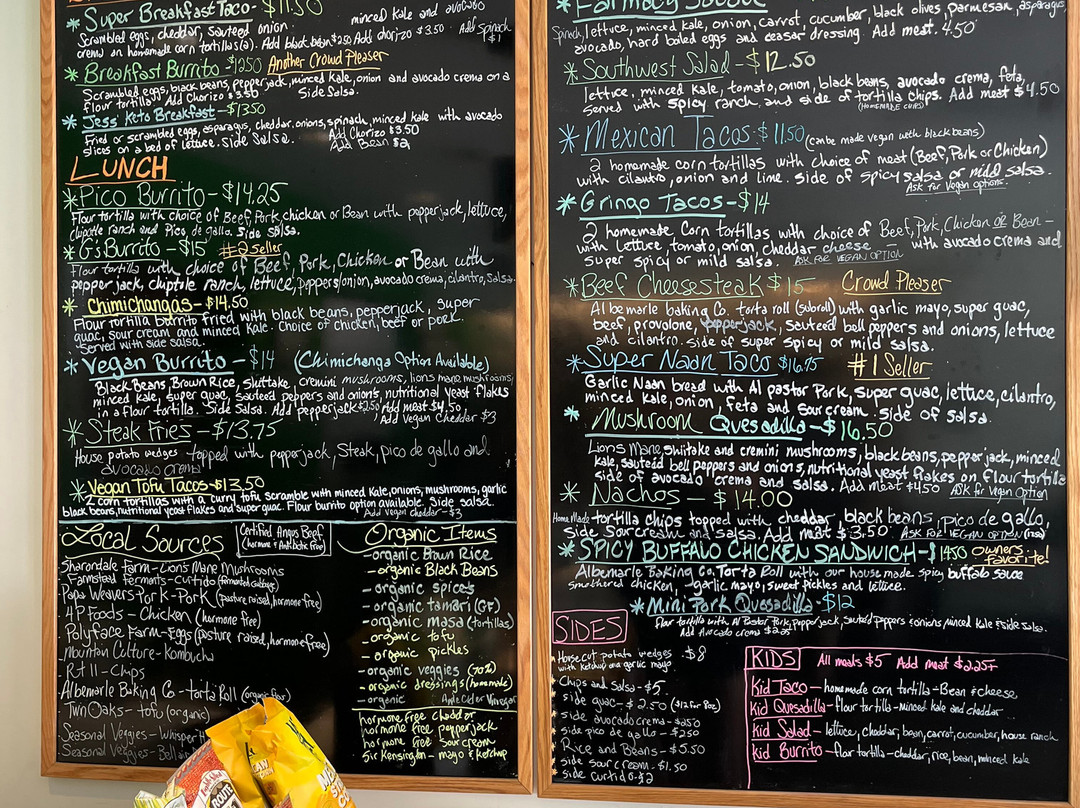 * Super Breakfast Taco - $11.50
Scrambled eggs, cheddar, sauteed onion. minced kale and avocado
crema on homemade corn tortillas(2). Add black bean $2.50 Add chorizo $3.50. Add Spinach $1
* Breakfast Burrito - $12.50 Another Crowd Pleaser
Scrambled eggs, black beans, pepperjack, minced kale, onion and avocado crema on a
flour tortilla. Add Chorizo $3.50 Side Salsa.
* Jess' Keto Breakfast - $13.50
Fried or scrambled eggs, asparagus, cheddar, onions, spinach, minced kale with avocado
slices on a bed of lettuce. Side Salsa. Add Chorizo $3.50
Add Bean $2
LUNCH
* Pico Burrito - $14.25
Flour tortilla with choice of Beef, Pork, chicken or Bean with pepperjack, lettuce,
chipotle ranch and Pico de gallo. Side Salsa.
* G's Burrito - $15 #2 seller
Flour tortilla with choice of Beef, Pork, Chicken or Bean with
pepper jack, chiptole ranch, lettuce, peppers/onion, avocado crema, cilantro, Salsa.
* Chimichangas - $14.50
Flour tortilla burrito fried with black beans, pepperjack, super
guac, sour cream and minced kale. Choice of chicken, beef or pork.
Served with side salsa.
* Vegan Burrito - $14 (Chimichanga Option Available)
Black Beans, Brown Rice, shittake, cremini mushrooms, lions mane mushrooms,
minced kale, super guac, sauteed peppers and onions, nutritional yeast flakes
in a flour tortilla. Side Salsa. Add pepperjack $2.50 Add meat $4.50.
Add Vegan Cheddar $3
* Steak Fries - $13.75
House potato wedges topped with pepperjack, Steak, pico de gallo and
avocado crema
* Vegan Tofu Tacos - $13.50
2 corn tortillas with a curry tofu scramble with minced kale, onions, mushrooms, garlic
black beans, nutritional yeast flakes and super guac. Flour burrito option available. Side salsa.
Add Vegan Cheddar - $3
Local Sources
Certified Angus Beef
(hormone & Antibiotic free)
Sharondale Farm - Lions Mane Mushrooms
Farmstead Ferments - Curtido (fermented cabbage)
Papa Weavers Pork - Pork (pasture raised, hormone free)
4P Foods - Chicken (hormone free)
Polyface Farm - Eggs (pasture raised, hormone free)
Mountain Culture - Kombucha
Rt 11 - Chips
Albemarle Baking Co - torta Roll (organic flour)
Twin Oaks - tofu (organic)
Seasonal Veggies -
Seasonal Veggies -
Organic Items
- organic Brown Rice
- organic Black Beans
- organic spices
- organic tamari (GF)
- organic masa (tortillas)
- organic tofu
- organic pickles
- organic veggies (70%)
- organic dressings (homemade)
- organic Apple Cider Vinegar
hormone free cheddar
hormone free pepperjack
hormone free sour cream
Sir Kensington - mayo & ketchup
ROUTE
Farmacy Salad
Spinach, lettuce, minced kale, onion, carrot, cucumber, black olives, parmesan, asparagus
avocado, hard boiled eggs and ceasar dressing. Add meat. 4.50
* Southwest Salad - $12.50
lettuce, minced kale, tomato, onion, black beans, avocado crema, feta,
served with spicy ranch and side of tortilla chips. Add meat $4.50
(HOMEMADE CHIPS)
* Mexican Tacos - $11.50 (can be made vegan with black beans)
2 homemade corn tortillas with choice of meat (Beef, Pork or Chicken)
with cilantro, onion and lime. Side of spicy salsa or mild salsa.
Ask for Vegan options.
* Gringo Tacos - $14
2 homemade Corn tortillas with choice of Beef, Pork, Chicken or Bean -
with lettuce, tomato, onion, cheddar cheese - with avocado crema and
super spicy or mild salsa. ASK FOR VEGAN OPTION
* Beef Cheesesteak $15 Crowd Pleaser
Albemarle baking Co. torta roll (sub roll) with garlic mayo, super guac,
beef, provolone, pepperjack, sauteed bell peppers and onions, lettuce
and cilantro. side of super spicy or mild salsa.
* Super Naan Taco $16.75 #1 Seller
Garlic Naan bread with Al pastor Pork, super guac, lettuce, cilantro,
minced kale, onion, feta and sour cream. side of salsa.
* Mushroom Quesadilla - $16.50
Lions Mane, shiitake and cremini mushrooms, black beans, pepper jack, minced
kale, sauteed bell peppers and onions, nutritional yeast flakes on flour tortilla
side of avocado crema and salsa. Add meat $4.50 ASK for Vegan Option
* Nachos - $14.00
Home Made tortilla chips topped with cheddar, black beans, pico de gallo,
side sour cream and salsa. Add meat $3.50. ASK FOR VEGAN OPTION
* SPICY BUFFALO CHICKEN SANDWICH - $14.50 owners favorite!
Albemarle Baking Co. Torta Roll with our house made spicy buffalo sauce
smothered chicken, garlic mayo, sweet pickles and lettuce.
* Mini Pork Quesadilla - $12
Flour tortilla with Al Pastor Pork, pepperjack, sauteed peppers & onions, minced kale & side salsa.
Add Avocado crema $2.25
SIDES
House cut potato wedges - $8
with ketchup and garlic mayo
Chips and Salsa - $5
side guac - $2.50
side avocado crema - $2.50
side pico de gallo - $2.50
Rice and Beans - $5.50
side sour cream - $1.50
side curtido - $2
KIDS All meals $5 Add meat $2.25+
Kid Taco - homemade corn tortilla - Bean & cheese
Kid Quesadilla - flour tortilla - minced kale and cheddar
Kid Salad - lettuce, cheddar, bean, carrot, cucumber, house ranch
Kid Burrito - flour tortilla - cheddar, rice, bean, minced kale